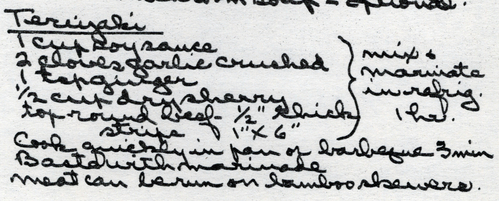 soup - optional.
Teriyaki
1 cup soy sauce
2 cloves garlic crushed
1 tsp ginger
1/2 cup dry sherry
top round beef - 1/2" thick
strips 1" x 6"
mix &
marinate
in refrig.
1 hr.
Cook quickly in pan or barbeque 3 min
Baste with marinade
meat can be run on bamboo skewers.